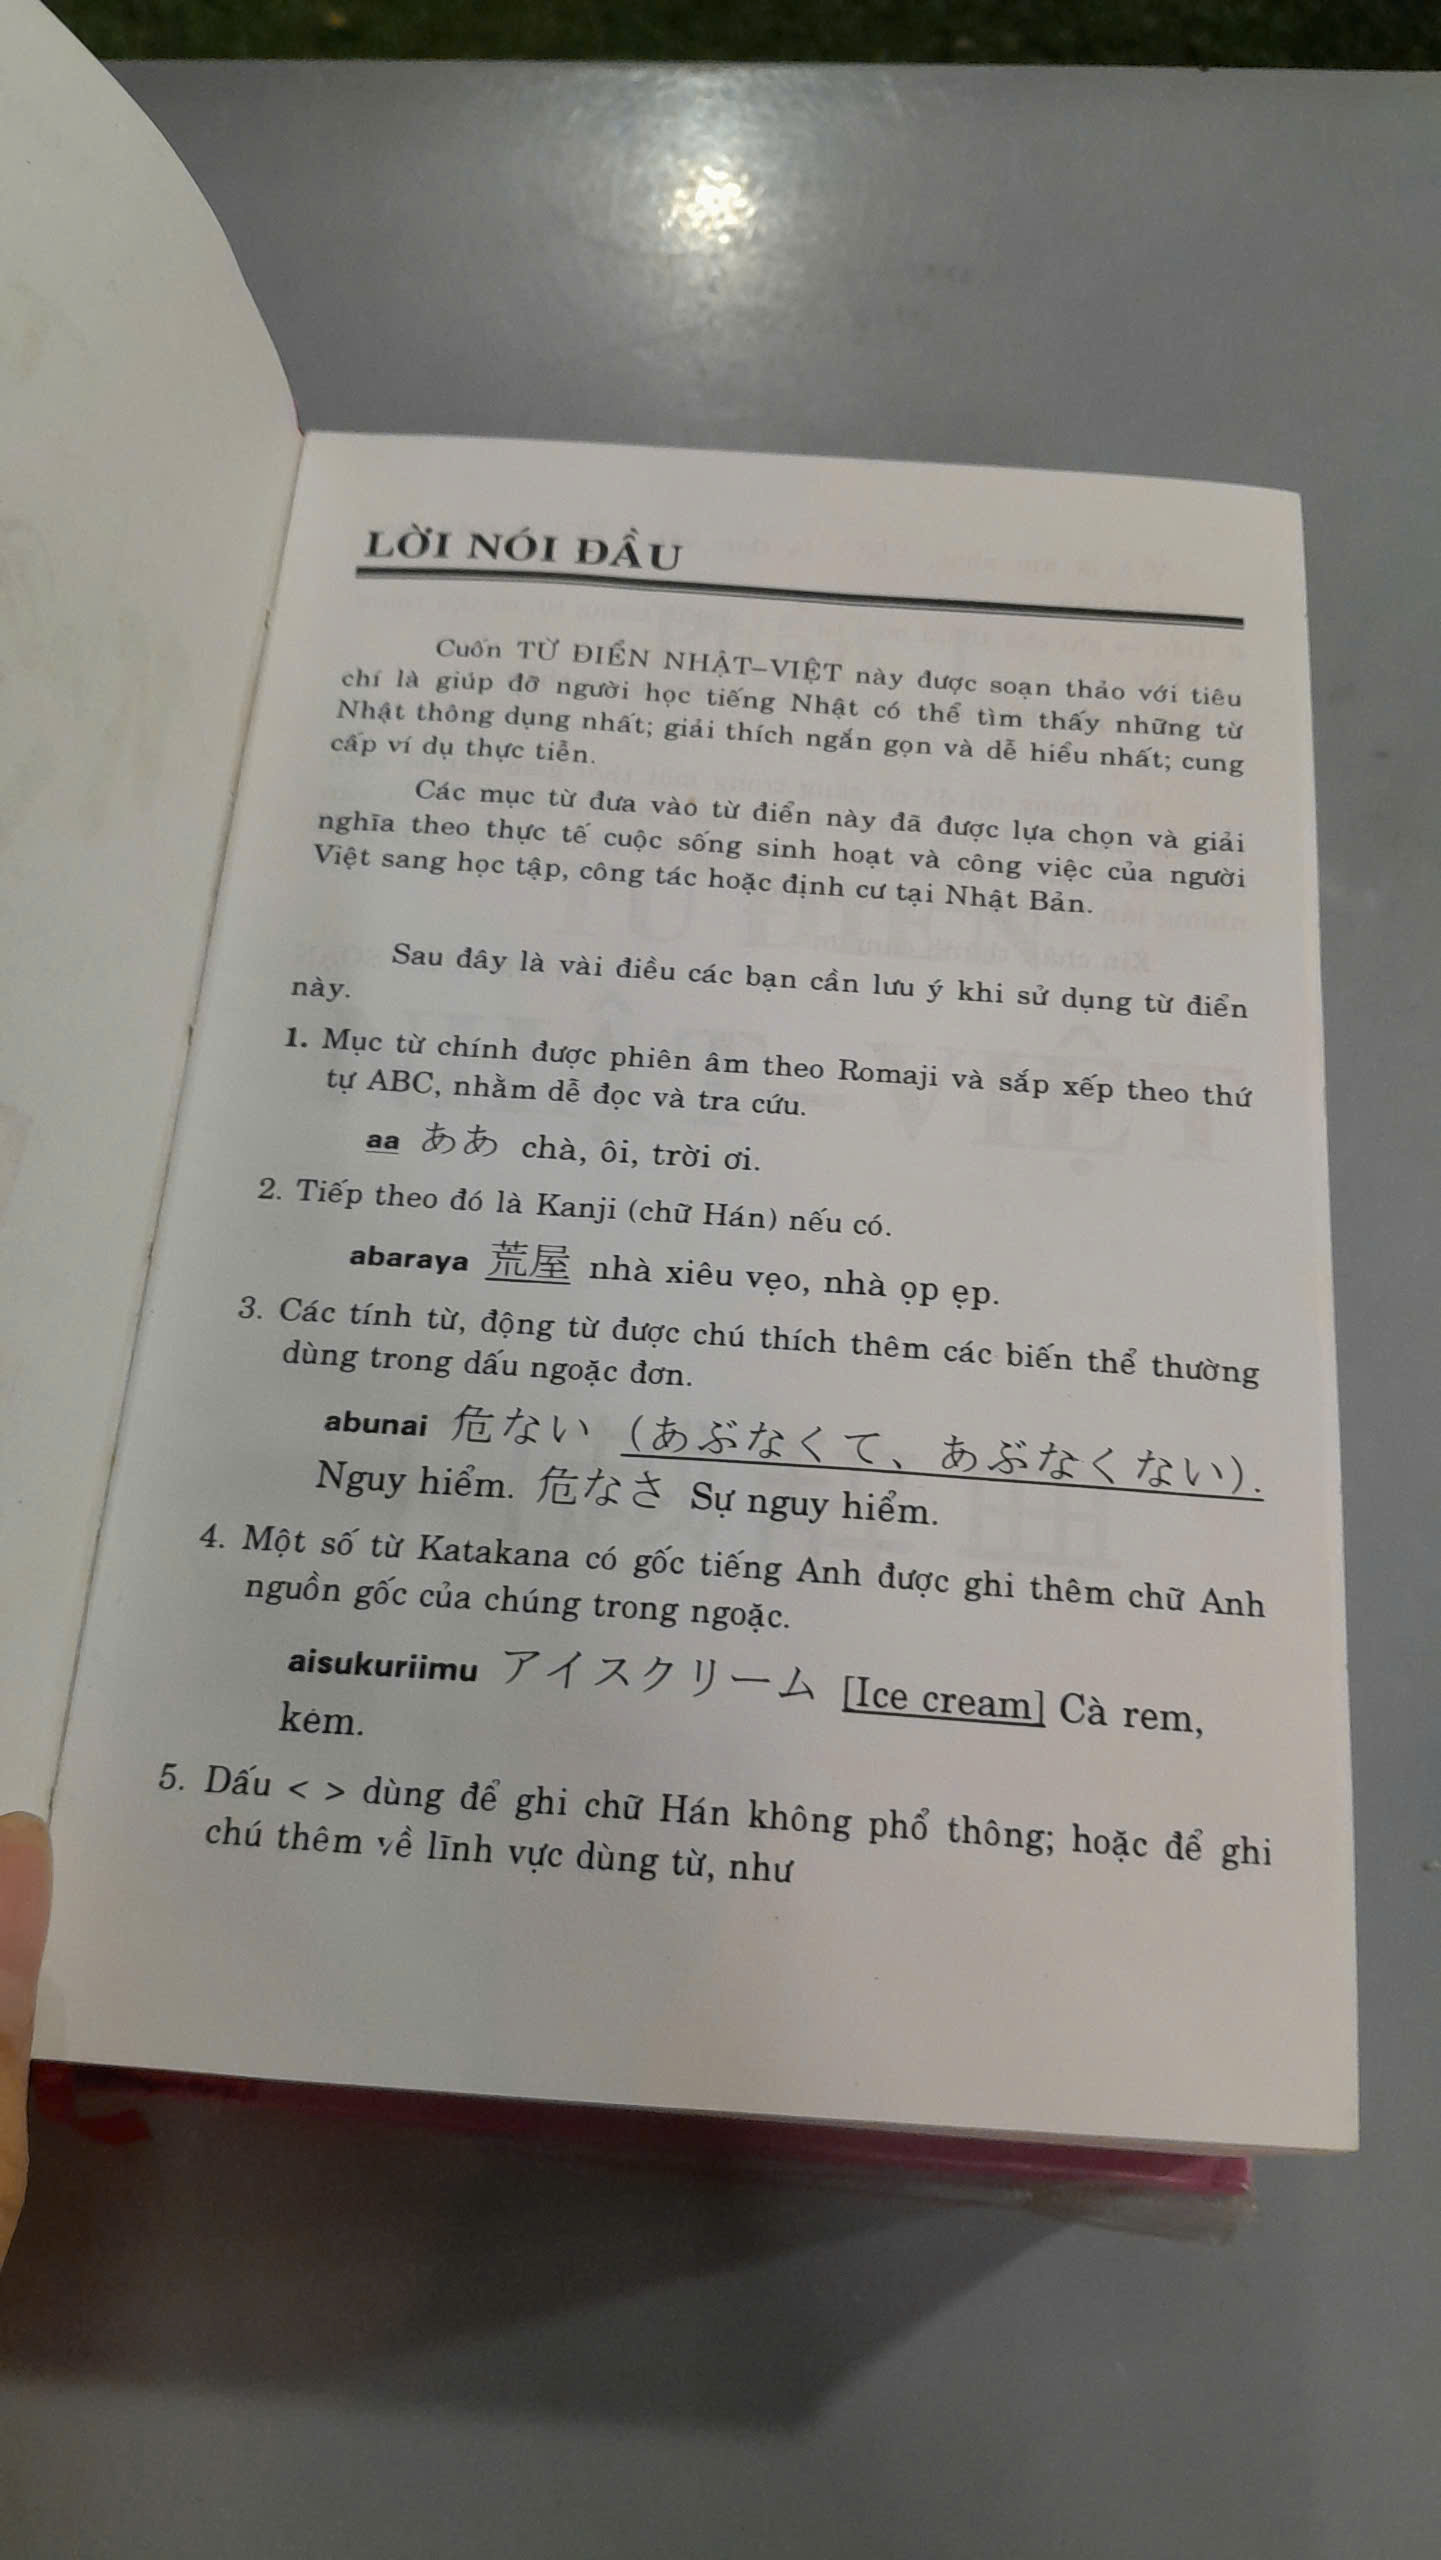 LỜI NÓI ĐẦU
Cuốn TỪ ĐIỂN NHẬT–VIỆT này được soạn thảo với tiêu
chí là giúp đỡ người học tiếng Nhật có thể tìm thấy những từ
Nhật thông dụng nhất; giải thích ngắn gọn và dễ hiểu nhất; cung
cấp ví dụ thực tiễn.
Các mục từ đưa vào từ điển này đã được lựa chọn và giải
nghĩa theo thực tế cuộc sống sinh hoạt và công việc của người
Việt sang học tập, công tác hoặc định cư tại Nhật Bản.
Sau đây là vài điều các bạn cần lưu ý khi sử dụng từ điển
này.
1. Mục từ chính được phiên âm theo Romaji và sắp xếp theo thứ
tự ABC, nhằm dễ đọc và tra cứu.
aa ああ chà, ôi, trời ơi.
2. Tiếp theo đó là Kanji (chữ Hán) nếu có.
abaraya 荒屋 nhà xiêu vẹo, nhà ọp ẹp.
3. Các tính từ, động từ được chú thích thêm các biến thể thường
dùng trong dấu ngoặc đơn.
abunai 危ない (あぶなくて、あぶなくない).
Nguy hiểm. 危なさ Sự nguy hiểm.
4. Một số từ Katakana có gốc tiếng Anh được ghi thêm chữ Anh
nguồn gốc của chúng trong ngoặc.
aisukuriimu アイスクリーム [Ice cream] Cà rem,
kem.
5. Dấu < > dùng để ghi chữ Hán không phổ thông; hoặc để ghi
chú thêm về lĩnh vực dùng từ, như